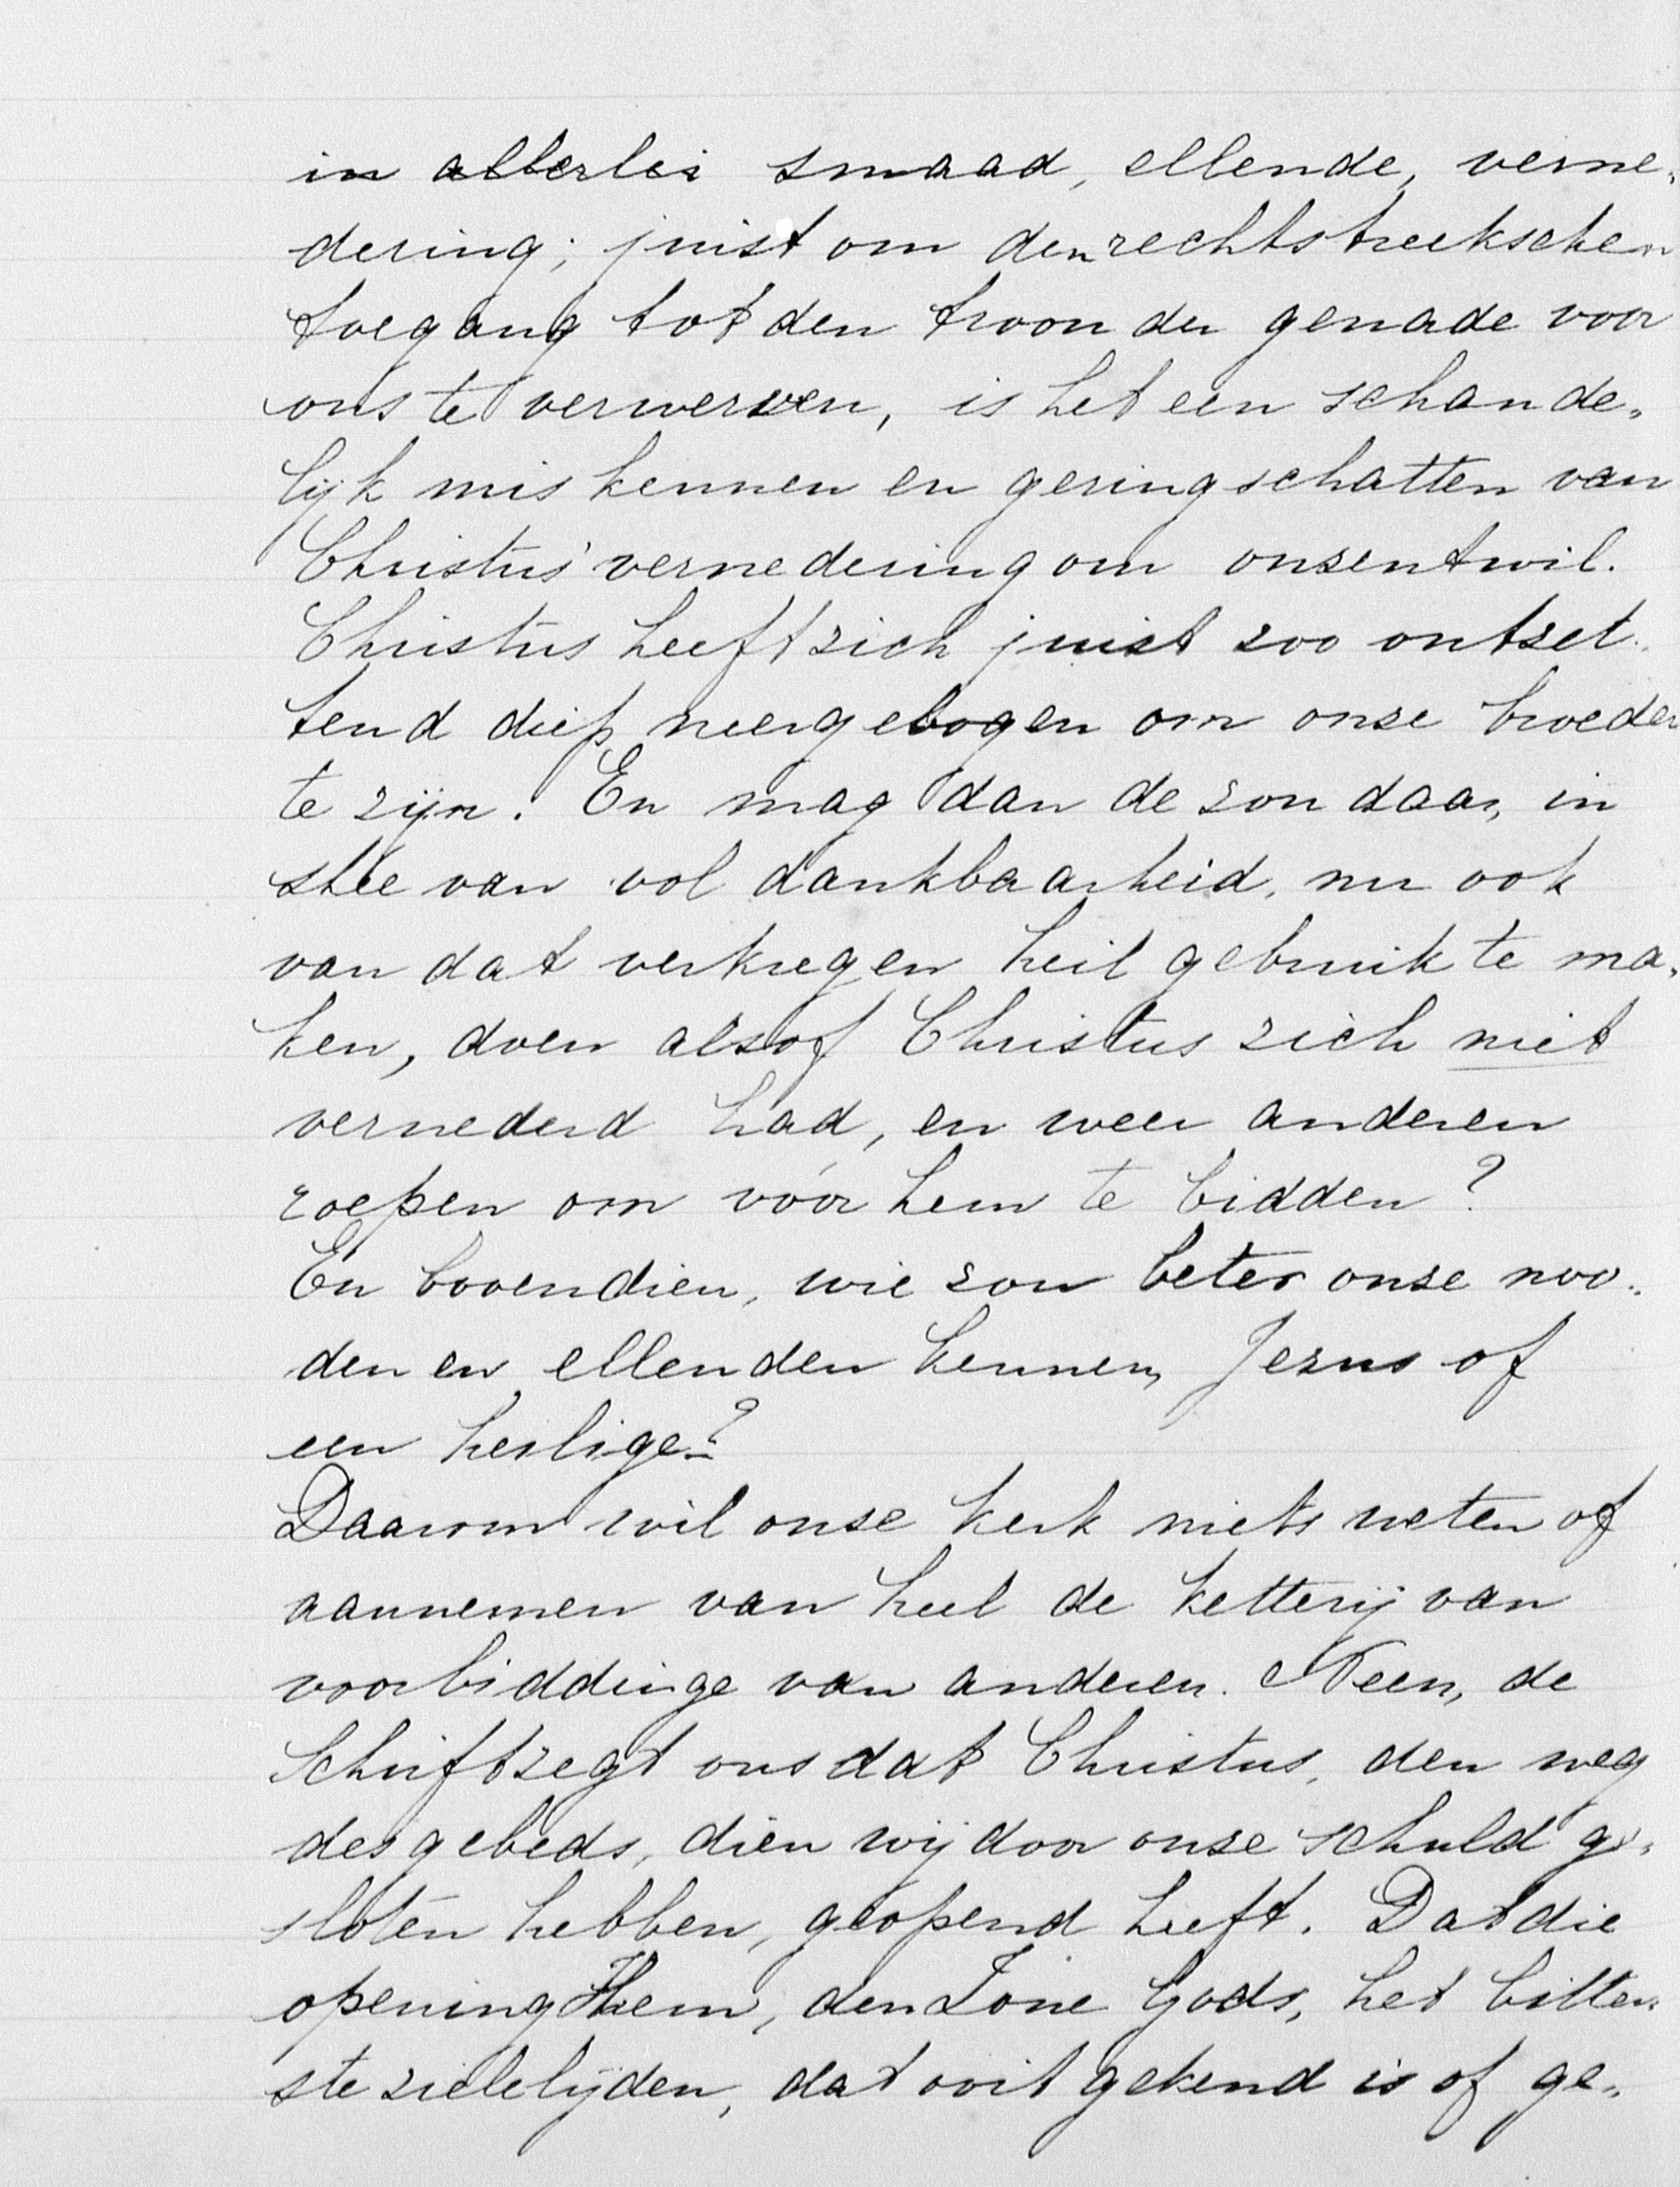 in allerlei smaad, ellende, verne„
dering; juist om den rechtstreekschen
toegang tot den troon der genade voor
ons te verwerven, is het een schande„
lijk miskennen en geringschatten van
Christus' vernedering om onzentwil.
Christus heeft zich juist zoo ontzet„
tend diep neergebogen om onze broeder
te zijn. En mag dan de zondaar, in
stee van vol dankbaarheid, nu ook
van dat verkregen heil gebruik te ma„
ken, doen alsof Christus zich niet
vernederd had, en weer anderen
roepen om vóór hem te bidden?
En bovendien, wie zou beter onze noo„
den en ellenden kennen, Jezus of
een heilige?
Daarom wil onze kerk niets weten of
aannemen van heel de ketterij van
voorbiddinge van anderen. Neen, de
Schrift zegt ons dat Christus, den weg
des gebeds, dien wij door onze schuld ge„
sloten hebben, geopend heeft. Dat die
opening Hem, den Zone Gods, het bitter„
ste zielelijden, dat ooit gekend is of ge„